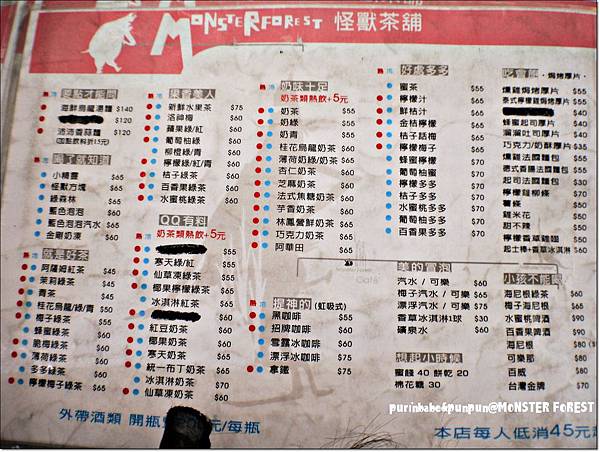 MONSTERFOREST 怪獸茶舖
要點才能問
海鮮烏龍湯麵 $140
$120
$120
(加點飲料折15元)
喝了就知道
小精靈 $65
怪獸方塊 $65
綠森林 $65
藍色泡泡 $65
藍色泡泡汽水 $65
金剛奶凍 $60
就是好茶
阿薩姆紅茶 $45
茉莉綠茶 $45
青茶 $45
桂花烏龍/綠/青 $50
梅子綠茶 $55
蜂蜜綠茶 $60
脆梅綠茶 $60
薄荷綠茶 $60
多多綠茶 $60
檸檬梅子綠茶 $65
果香誘人
新鮮水果茶 $75
洛神梅 $60
蘋果綠/紅 $60
葡萄柚綠 $60
柳橙綠/青 $60
檸檬綠/紅/青 $60
桔子綠茶 $60
百香果綠茶 $60
水蜜桃綠茶 $60
QQ有料
奶茶類熱飲+5元
$55
寒天綠/紅 $55
仙草凍綠茶 $55
椰果檸檬綠茶 $65
冰淇淋紅茶 $65
$60
紅豆奶茶 $60
椰果奶茶 $60
寒天奶茶 $65
統一布丁奶茶 $65
冰淇淋奶茶 $70
仙草凍奶茶 $60
奶味十足
奶茶類熱飲+5元
奶茶 $55
奶綠 $55
奶青 $55
桂花烏龍奶茶 $60
薄荷奶綠/奶茶 $65
杏仁奶茶 $60
芝麻奶茶 $60
法式焦糖奶茶 $60
芋香奶茶 $60
林鳳營鮮奶茶 $65
巧克力奶茶 $65
阿華田 $60
提神的(虹吸式)
黑咖啡 $55
招牌咖啡 $60
雪露冰咖啡 $60
漂浮冰咖啡 $75
拿鐵 $75
好處多多
蜜茶 $55
檸檬汁 $65
鮮桔汁 $65
金桔檸檬 $65
桔子話梅 $65
檸檬梅子 $65
蜂蜜檸檬 $70
葡萄柚蜜 $70
檸檬多多 $70
桔子多多 $70
水蜜桃多多 $70
葡萄柚多多 $70
百香果多多 $70
美的冒泡
汽水 / 可樂 $60
梅子汽水 / 可樂 $65
漂浮汽水 / 可樂 $75
香草冰淇淋1球 $30
礦泉水 $60
想起小時候
蜜餞 40 餅乾 20
棉花糖 30
燻雞起司焗烤厚片 $55
泰式檸檬雞焗烤厚片 $55
$40
蜂蜜起司厚片 $40
溜溜吐司厚片 $40
巧克力/奶酥厚片 $35
燻雞法國麵包 $55
德式香腸法國麵包 $55
起司法國麵包 $30
檸檬雞柳條 $70
薯條 $50
雞米花 $50
甜不辣 $50
檸檬香草雞翅 $50
起士棒+香草冰淇淋 $60
小孩不能喝
海尼根綠茶 $60
梅子海尼根 $60
水蜜桃啤酒 $90
百香果啤酒 $90
海尼根 $80
可樂那 $80
百威 $80
台灣金牌 $70
外帶酒類 開瓶 元/每瓶
purinbabe&punpun@MONSTER FOREST
本店每人低消45元